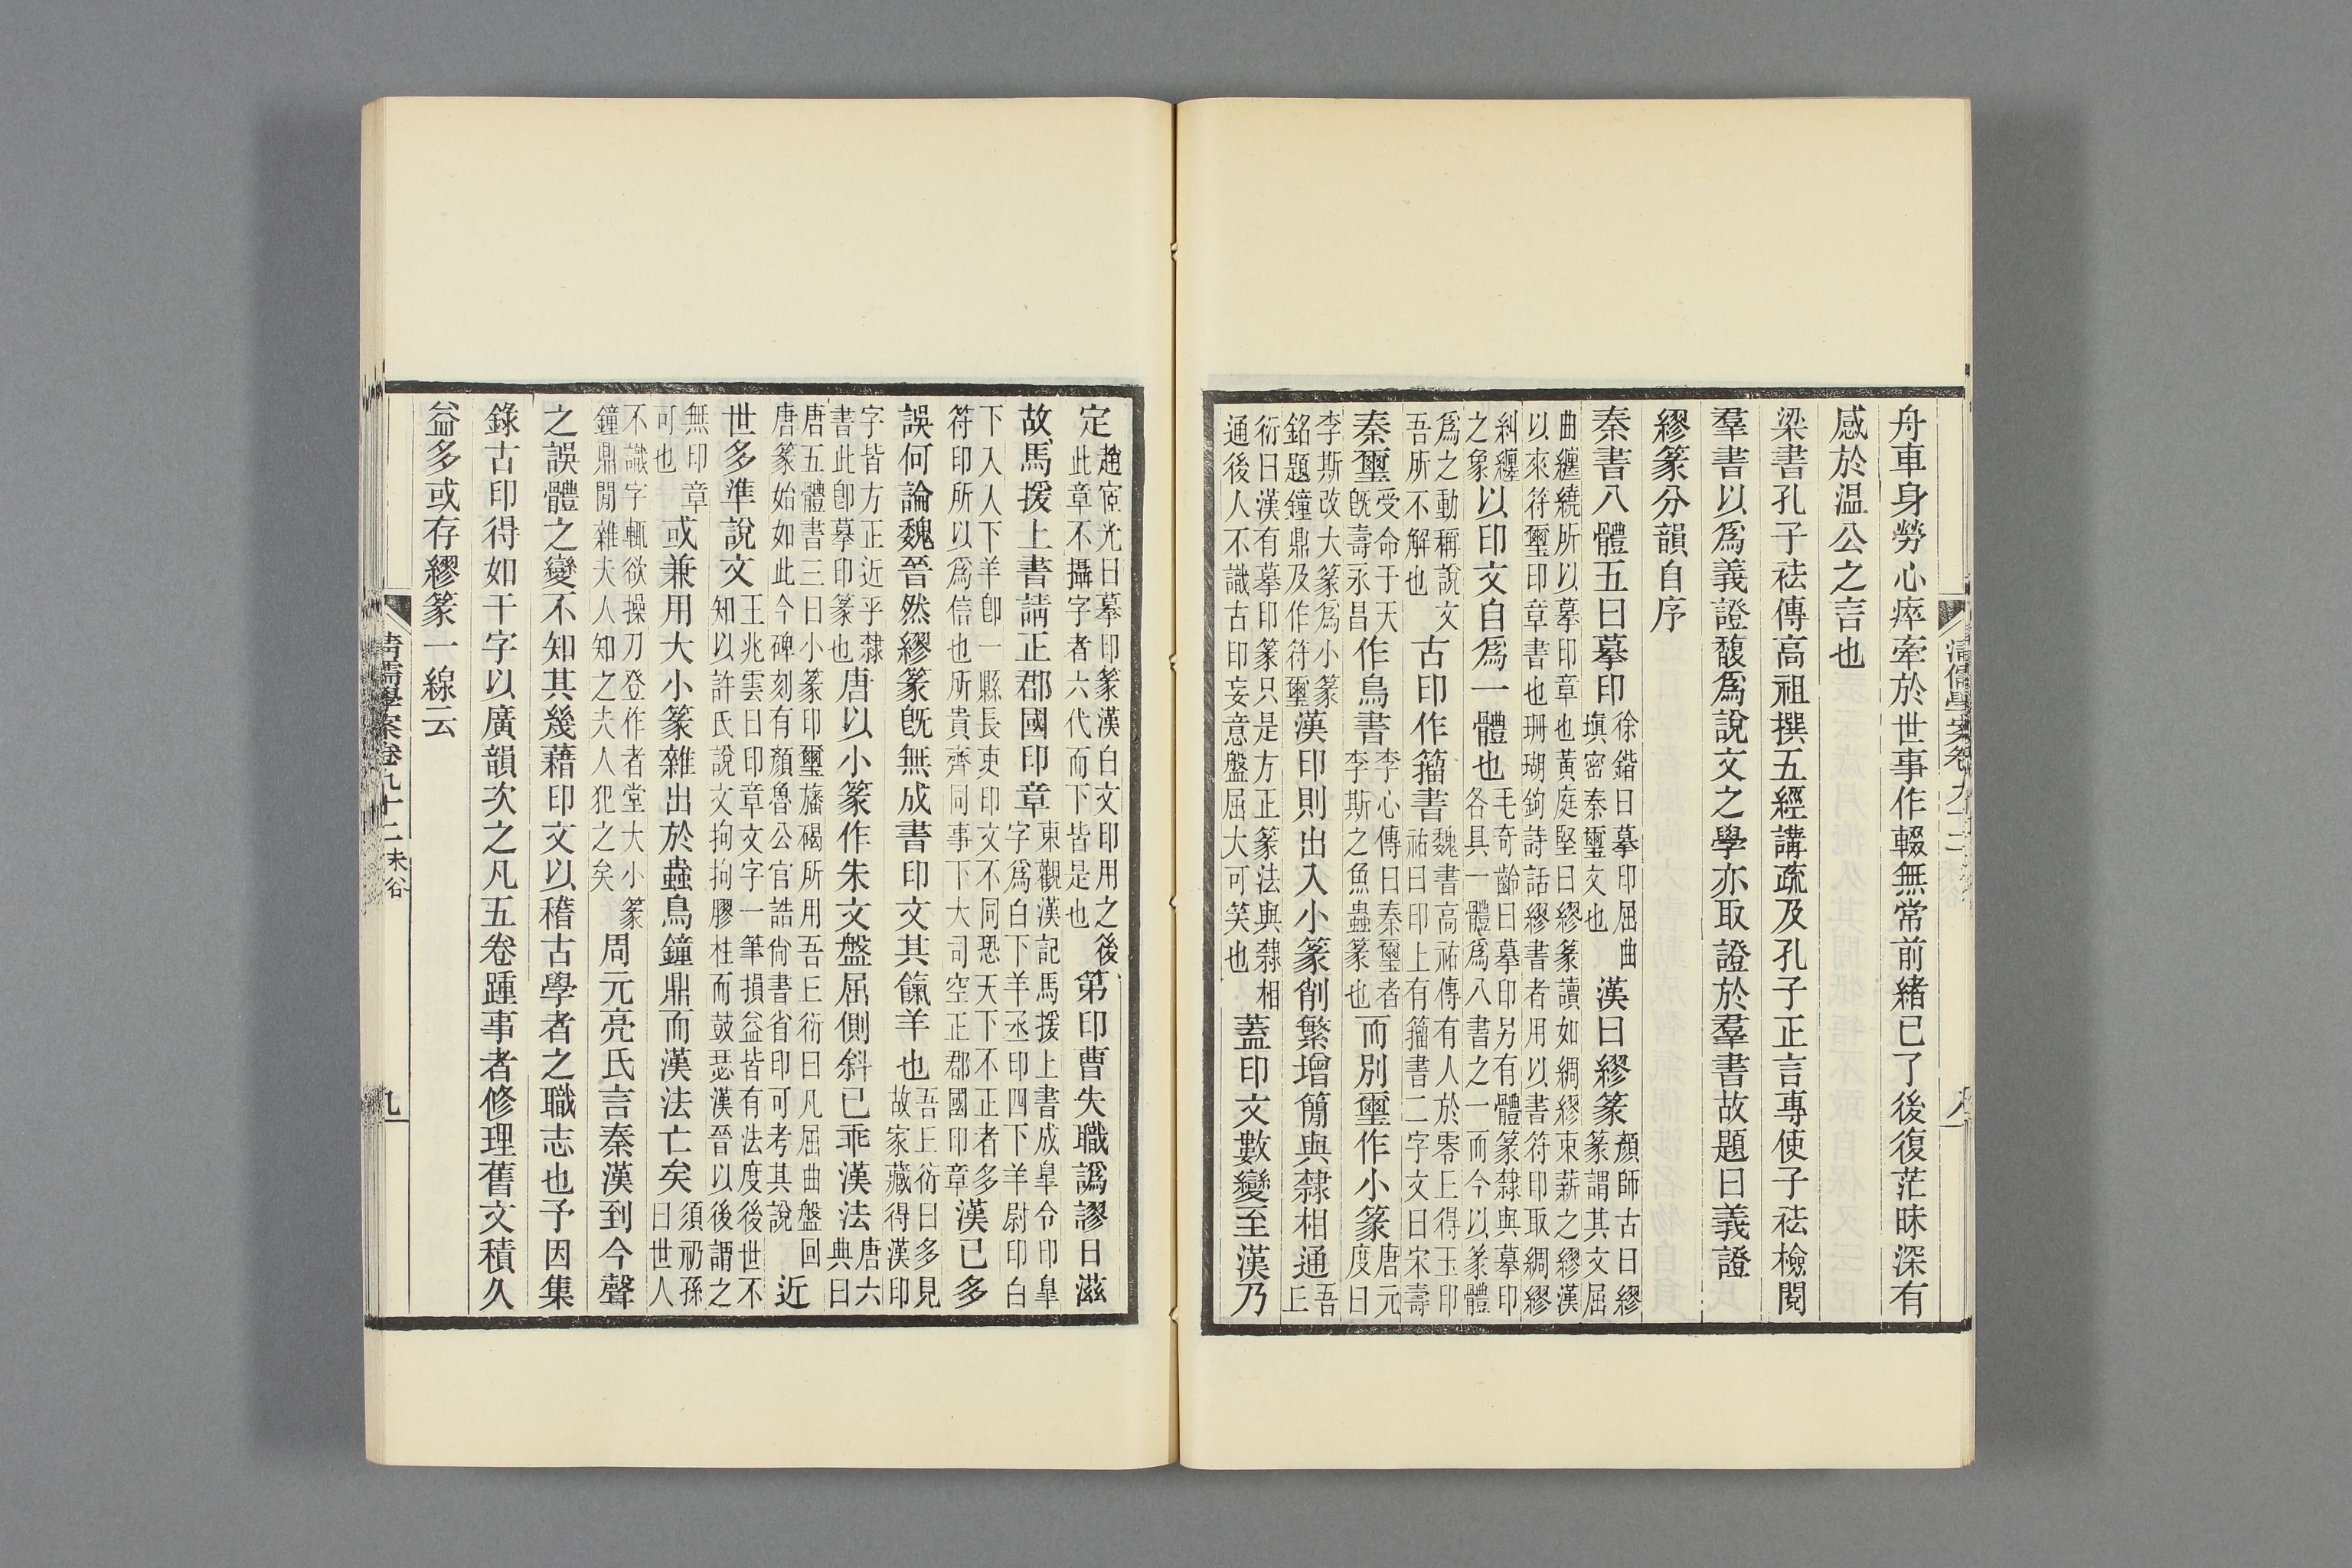 舟車身勞心瘁牽於世事作輟無常前緒已了後復茫昧深有
感於温公之言也
梁書孔子祛傳高祖撰五經講疏及孔子正言專使子祛檢閱
羣書以爲義證馥爲說文之學亦取證於羣書故題曰義證
繆篆分韻自序
秦書八體五曰摹印徐鍇曰摹印屈曲填密秦璽文也漢曰繆篆顏師古曰繆篆謂其文屈
曲纏繞所以摹印章也黃庭堅曰繆篆讀如綢繆束薪之繆漢以來符璽印章書也珊瑚鉤詩話繆書者用以書符印取綢繆
糾纏之象以印文自爲一體也毛奇齡曰摹印另有體篆隸與摹印各具一體爲八書之一而今以篆體
爲之動稱說文吾所不解也古印作籀書魏書高祐傳有人於零丘得玉印祐曰印上有籀書二字文曰宋壽
秦璽受命于天旣壽永昌作鳥書李心傳曰秦璽者李斯之魚蟲篆也而別璽作小篆唐元度曰
李斯改大篆爲小篆銘題鐘鼎及作符璽漢印則出入小篆削繁增簡與隸相通吾丘
衍曰漢有摹印篆只是方正篆法與隸相通後人不識古印妄意盤屈大可笑也蓋印文數變至漢乃
清儒學案卷九十二
八
定趙宧光曰摹印篆漢白文印用之後此章不攝字者六代而下皆是也第印曹失職譌謬日滋
故馬援上書請正郡國印章東觀漢記馬援上書成皐令印皐字爲白下羊丞印四下羊尉印白
下人人下羊卽一縣長吏印文不同恐天下不正者多符印所以爲信也所貴齊同事下大司空正郡國印章漢已多
誤何論魏晉然繆篆旣無成書印文其餼羊也吾丘衍曰多見故家藏得漢印
字皆方正近乎隸書此卽摹印篆也唐以小篆作朱文盤屈側斜已乖漢法唐六典曰
唐五體書三曰小篆印璽旛碣所用吾丘衍曰凡屈曲盤回唐篆始如此今碑刻有顏魯公官誥尙書省印可考其說近
世多準說文王兆雲曰印章文字一筆損益皆有法度後世不知以許氏說文拘拘膠柱而鼓瑟漢晉以後謂之
無印章可也或兼用大小篆雜出於蟲鳥鐘鼎而漢法亡矣須礽孫曰世人
不識字輒欲操刀登作者堂大小篆鐘鼎閒雜夫人知之夫人犯之矣周元亮氏言秦漢到今聲
之誤體之變不知其幾藉印文以稽古學者之職志也予因集
錄古印得如干字以廣韻次之凡五卷踵事者修理舊文積久
益多或存繆篆一線云
清儒學案卷九十二 未谷
九